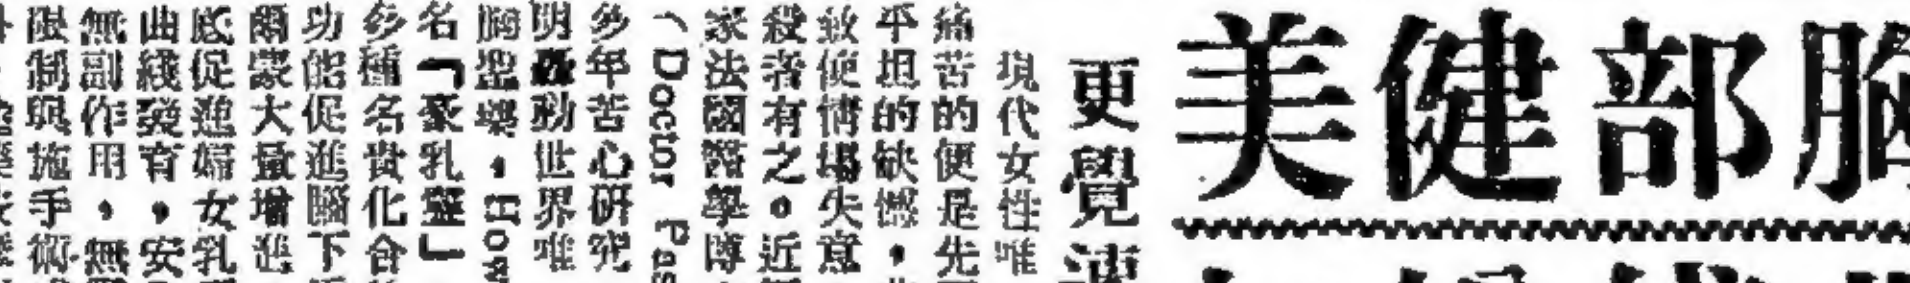 胸部健美
更覺
現代女性唯
痛苦的便是先
平坦的缺憾，
致使情場失意
殺者有之。近
家法國醫學博
（Doctor Pas
多年苦心研究
明轟動世界唯
胸聖藥，How
名「豪乳靈」
多種名貴化合
功能促進腦下
爾蒙大量增進
底促進婦女乳
曲綫發育，安
無副作用，無
限制與施手術